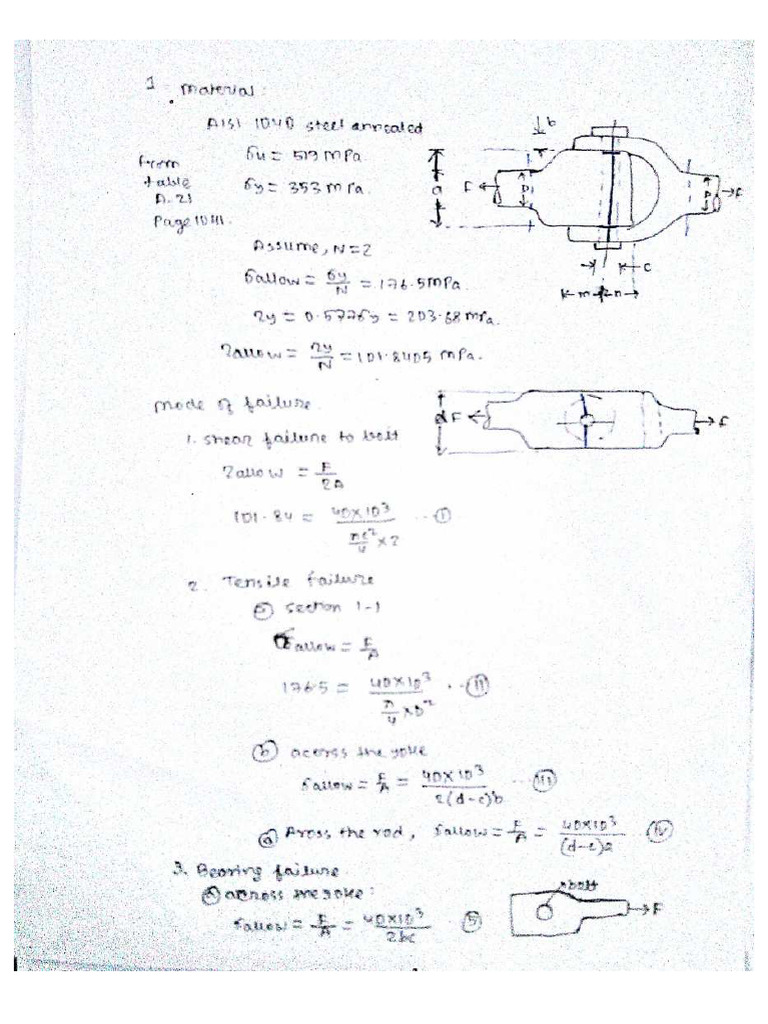 1. Material:
AISI 1040 steel annealed
From table A-21 Page 1041.
σu = 519 MPa.
σy = 353 MPa.
Assume, N=2
σallow = σy/N = 176.5 MPa.
τy = 0.577σy = 203.68 MPa.
τallow = τy/N = 101.8405 MPa.
b
a
F
D
D
F
c
m
n
Mode of failure
1. shear failure to bolt
τallow = F/2A
101.84 = 40×10³/(πc²/4 ×2) ... (i)
d
F
F
2. Tensile failure
(a) section 1-1
σallow = F/A
176.5 = 40×10³/(π/4 ×D²) ... (ii)
(b) across the yoke
σallow = F/A = 40×10³/2(d-c)b ... (iii)
Aross the rod, σallow = F/A = 40×10³/(d-c)a ... (iv)
3. Bearing failure
(a) across the yoke:
σallow = F/A = 40×10³/2bc ... (5)
bolt
F